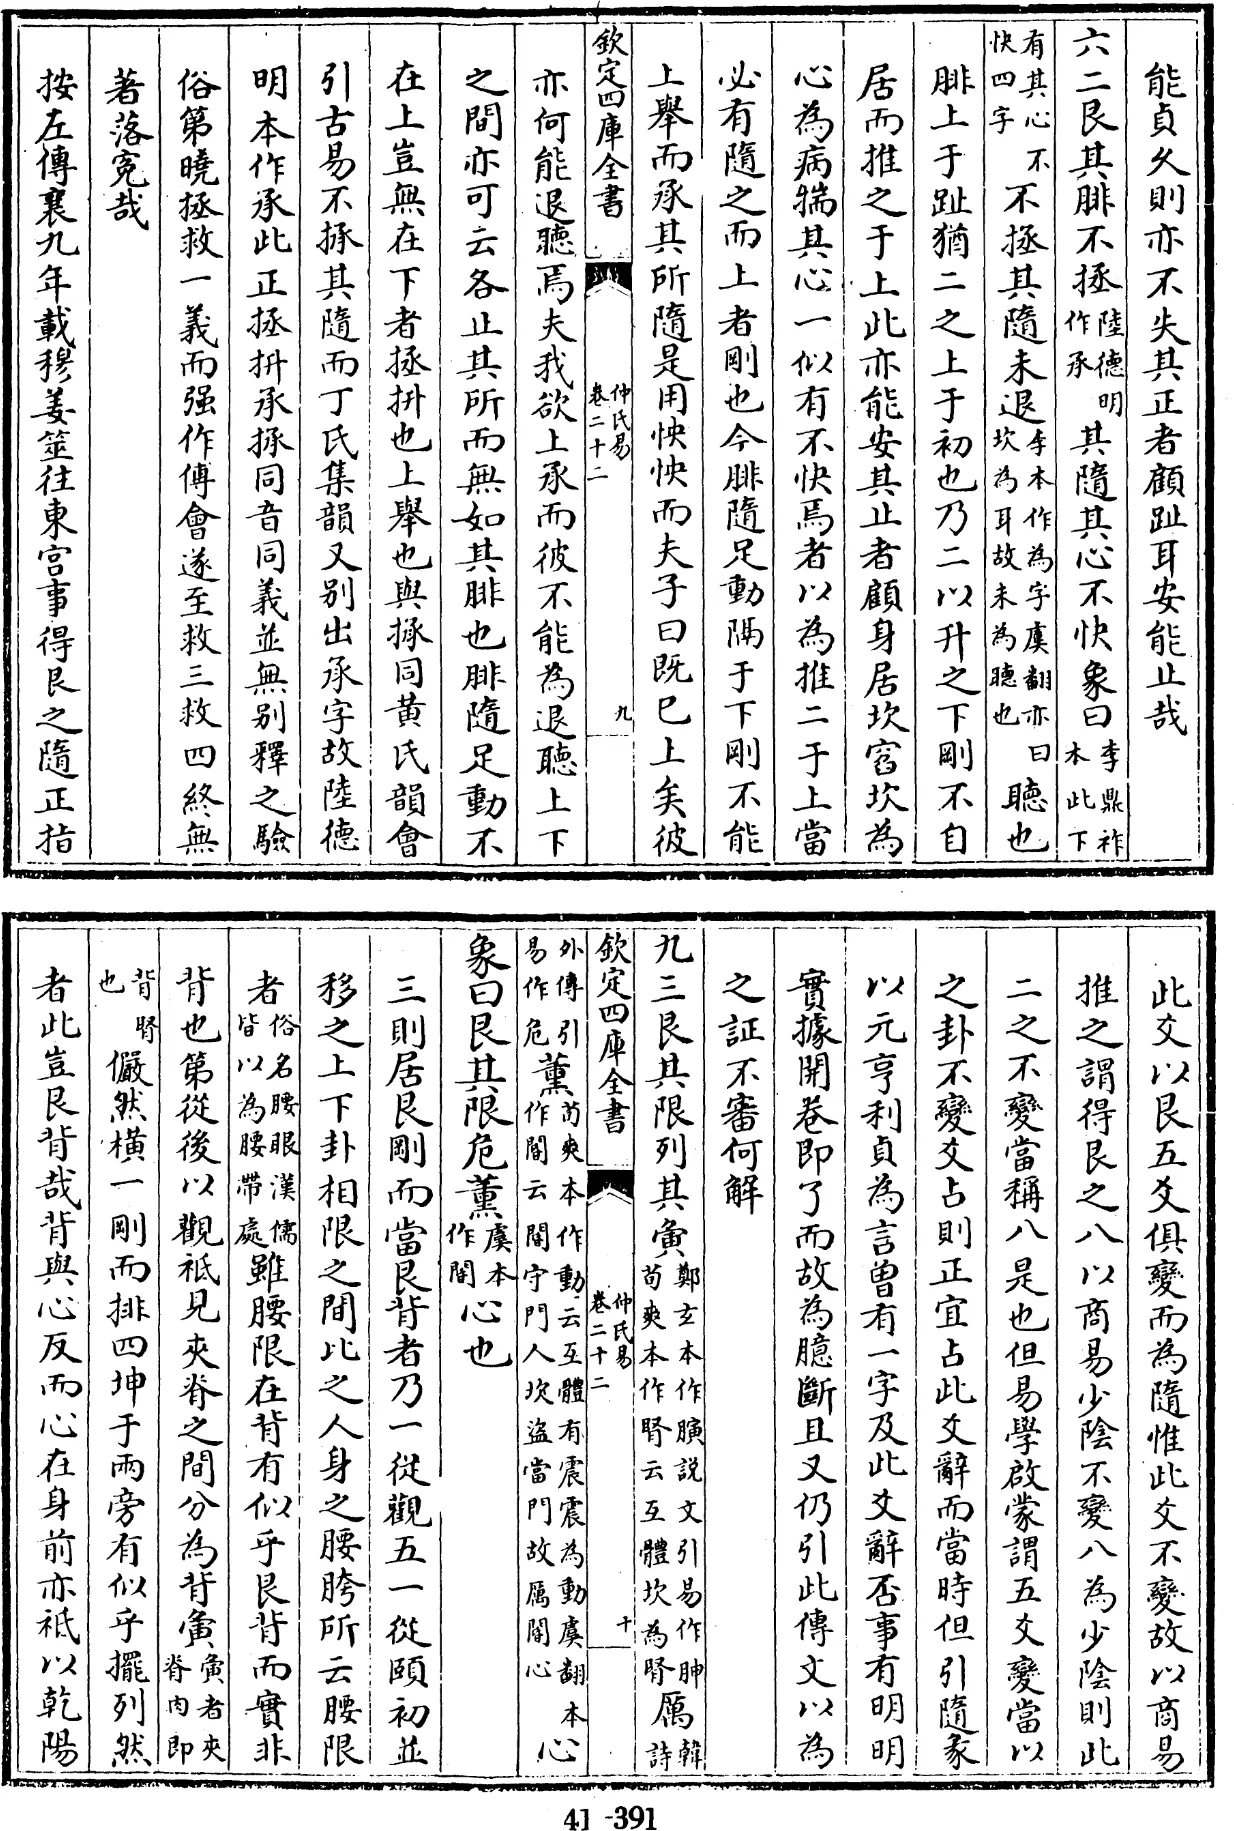 能貞久則亦不失其正者顧趾耳安能止哉
六二艮其腓不拯陸德明作承其隨其心不快象曰李鼎祚本此下
有其心不快四字不拯其隨未退李本作為字虞翻亦曰坎為耳故未為聽也聽也
腓上于趾猶二之上于初也乃二以升之下剛不自
居而推之于上此亦能安其止者顧身居坎窞坎為
心為病惴其心一似有不快焉者以為推二于上當
必有隨之而上者剛也今腓隨足動隅于下剛不能
上舉而承其所隨是用怏怏而夫子曰既已上矣彼
欽定四庫全書 仲氏易 卷二十二 九
亦何能退聽焉夫我欲上承而彼不能為退聽上下
之間亦可云各止其所而無如其腓也腓隨足動不
在上豈無在下者拯抍也上舉也與拯同黃氏韻會
引古易不拯其隨而丁氏集韻又别出承字故陸德
明本作承此正拯抍承拯同音同義並無别釋之驗
俗第曉拯救一義而强作傅會遂至救三救四終無
著落寃哉
按左傳襄九年載穆姜筮往東宮事得艮之隨正指
此爻以艮五爻俱變而為隨惟此爻不變故以商易
推之謂得艮之八以商易少陰不變八為少陰則此
二之不變當稱八是也但易學啟蒙謂五爻變當以
之卦不變爻占則正宜占此爻辭而當時但引隨彖
以元亨利貞為言曽有一字及此爻辭否事有明明
實據開卷即了而故為臆斷且又仍引此傳文以為
之証不審何解
九三艮其限列其夤鄭玄本作䐕說文引易作胂荀爽本作腎云互體坎為腎厲韓詩
欽定四庫全書 仲氏易 卷二十二 十
外傳引易作危薰荀爽本作動云互體有震震為動虞翻本作閽云閽守門人坎盜當門故厲閽心心
象曰艮其限危薰虞本作閽心也
三則居艮剛而當艮背者乃一從觀五一從頤初並
移之上下卦相限之間比之人身之腰胯所云腰限
者俗名腰眼漢儒皆以為腰帶處雖腰限在背有似乎艮背而實非
背也第從後以觀祗見夾脊之間分為背夤夤者夾脊肉即
背腎也儼然橫一剛而排四坤于兩旁有似乎擺列然
者此豈艮背哉背與心反而心在身前亦祗以乾陽
41-391